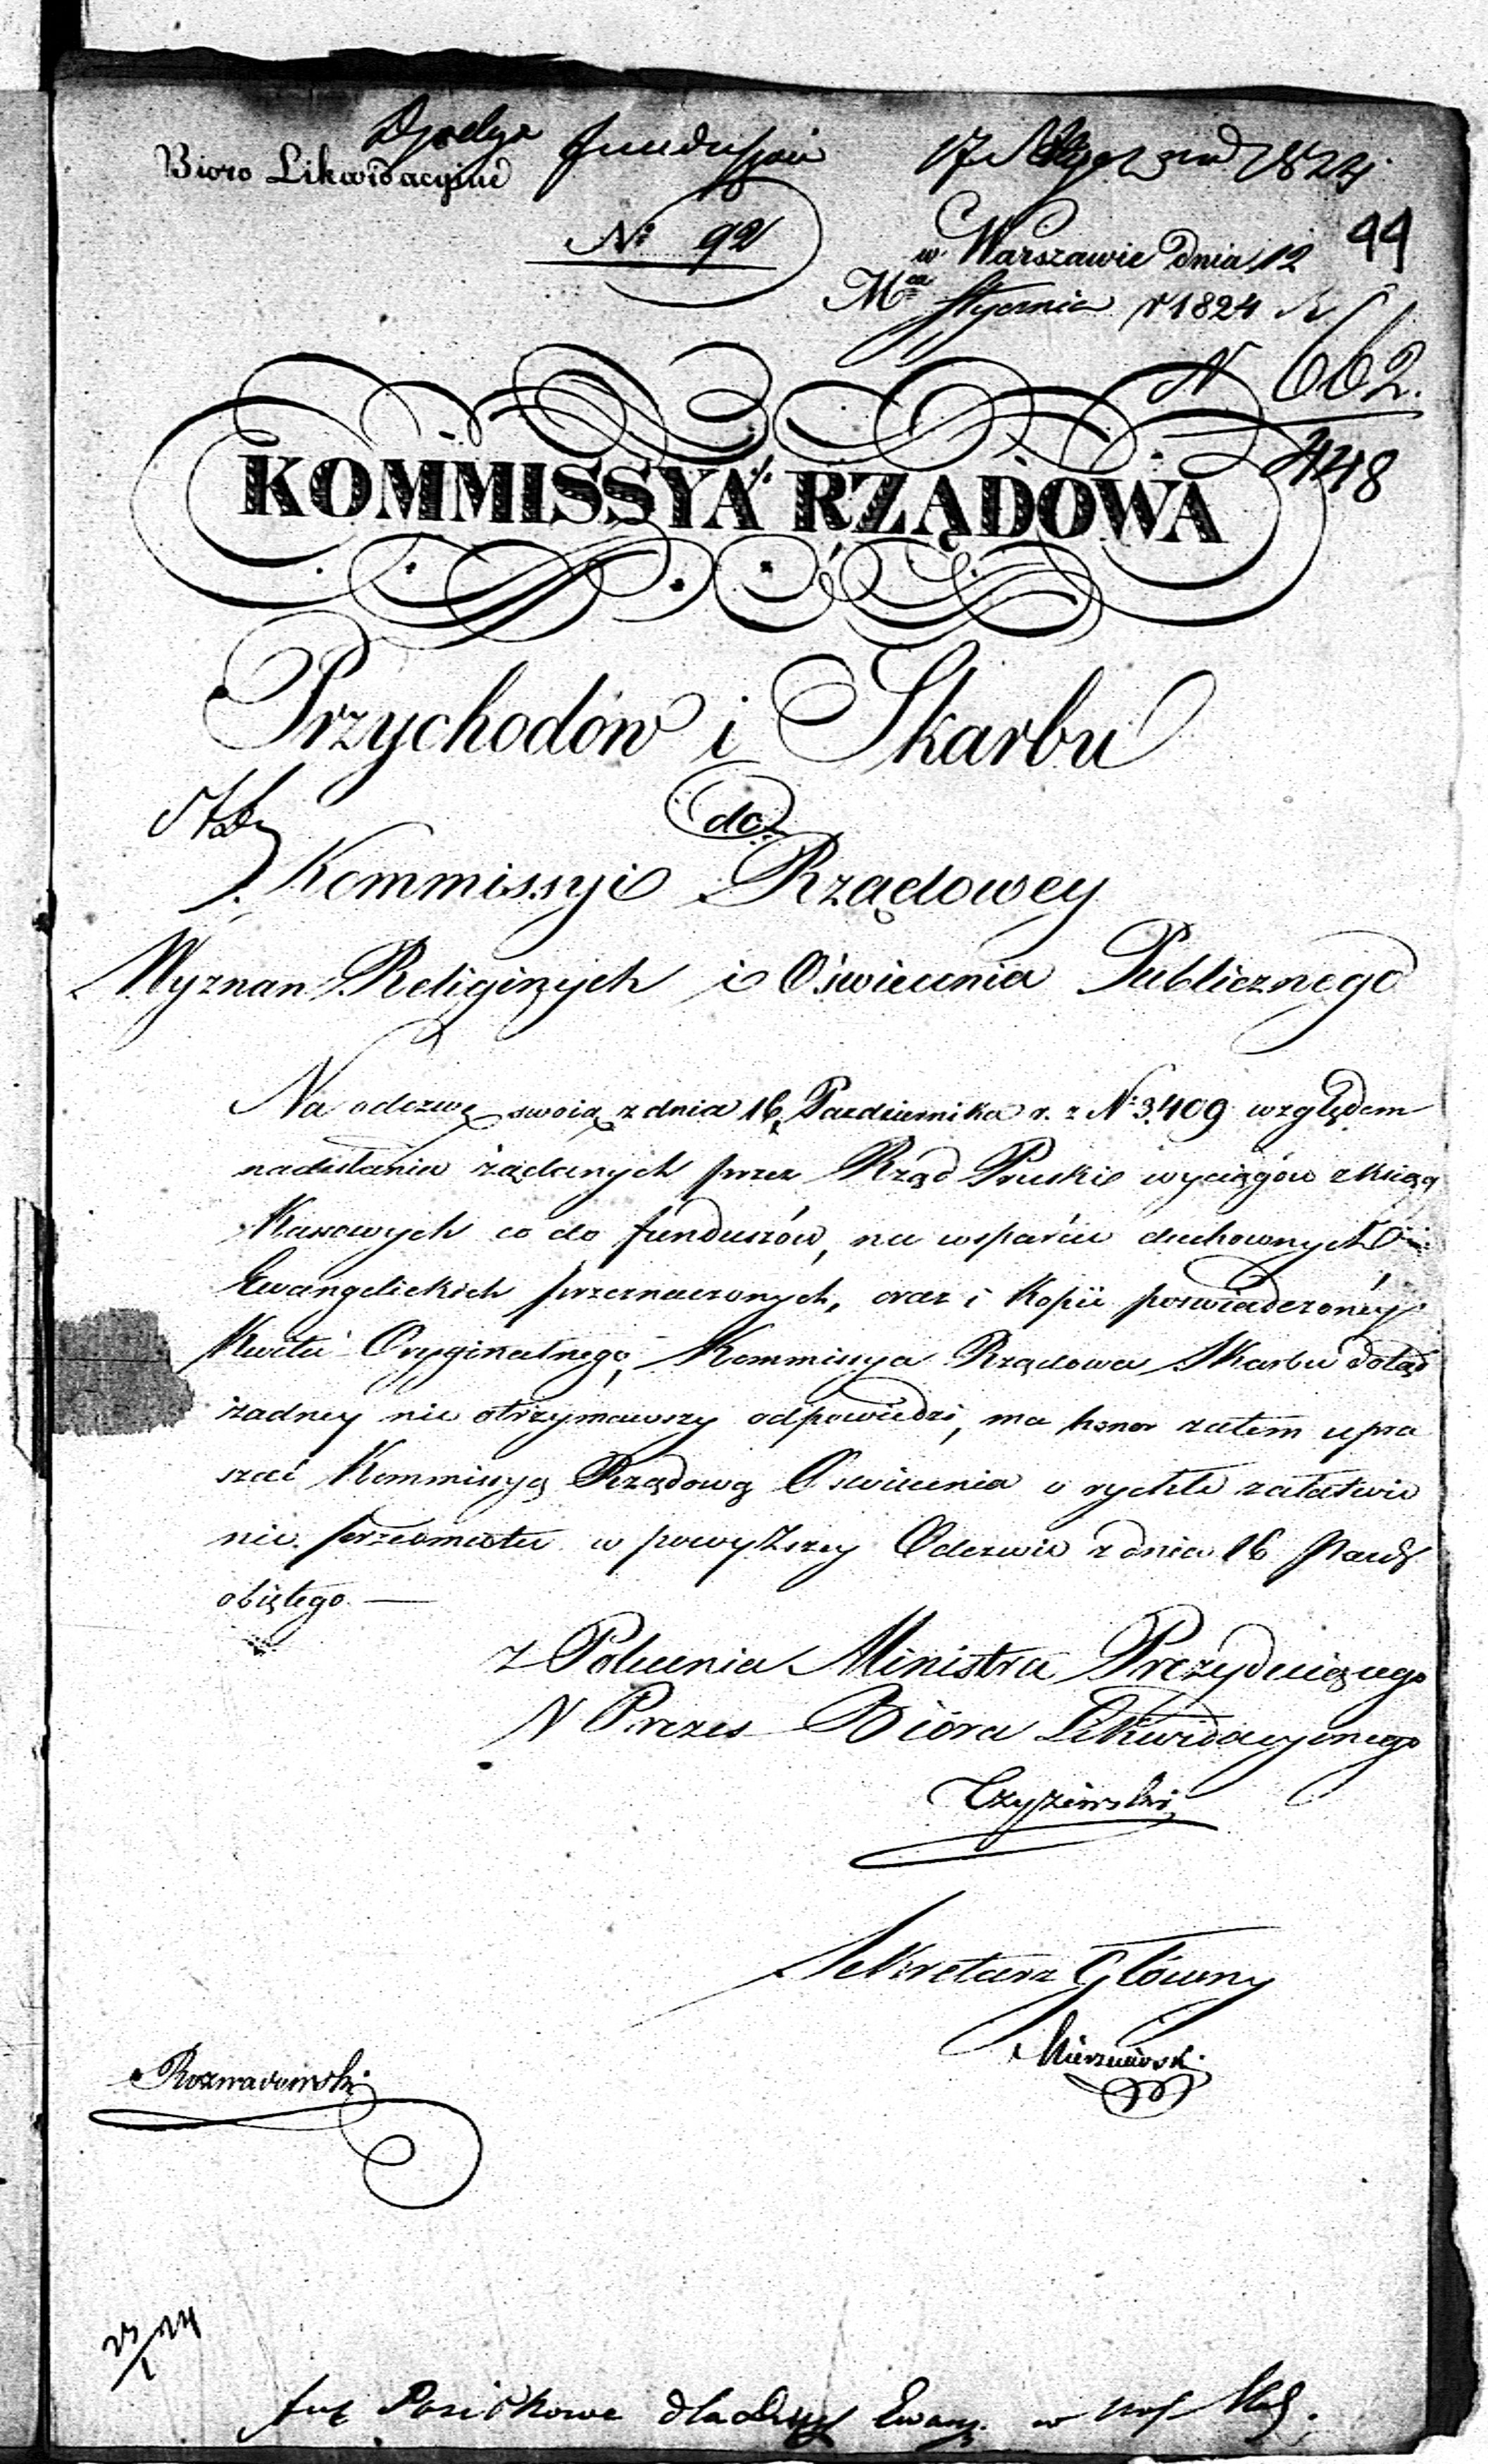 funduszów 17 1824
Biuro Likwidacyine
N: 92
44
w Warszawie dnia 12
Mca Stycznia r 1824 R
N 662.
448
KOMMISSYA RZĄDOWA
Przychodów i Skarbu
do
Kommissyi Rządowey
Wyznań Religiynych i Oświecenia Publicznego
Na odezwę swoię z dnia 16 Pazdziernika r. z N. 3409 względem
nadesłania żądanych przez Rząd Pruski wyciągów z ksiąg
Kassowych co do funduszów, na wsparcie duchownych
Ewangelickich przeznaczonych, oraz i Kopii poswiadczoney
Kwitu Oryginalnego, Kommissya Rządowa Skarbu dotąd
żadney nie otrzymawszy odpowiedzi, ma honor zatem upra
szać Kommissyą Rządową Oswiecenia o rychłe załatwie
nie przedmiotu w powyższey Odezwie z dnia 16 Pazdz
obiętego. —
z Polecenia Ministra Prezyduiącego
Prezes Biora Likwidacyonego
Czyżewski
Sekretarz Główny
Rozwadowski
23/1 24
Posiłkowe dla Ewang. w